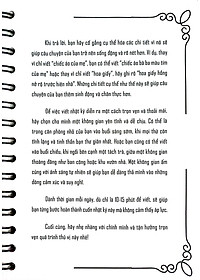 Khi trả lời, bạn hãy cố gắng cụ thể hóa các chi tiết vì nó sẽ
giúp câu chuyện của bạn trở nên sống động và rõ nét hơn. Ví dụ, thay
vì chỉ viết "chiếc áo của mẹ", bạn có thể viết "chiếc áo bà ba màu tím
của mẹ" hoặc thay vì chỉ viết "hoa giấy", hãy ghi rõ "hoa giấy hồng
nở rộ trước hiên nhà". Những chi tiết cụ thể như thế này sẽ giúp câu
chuyện của bạn thêm sinh động và chân thực hơn.
Để việc viết nhật ký diễn ra một cách trọn vẹn và thoải mái,
hãy chọn cho mình một không gian yên tĩnh và dễ chịu. Có thể là
trong căn phòng nhỏ của bạn vào buổi sáng sớm, khi mọi thứ còn
tĩnh lặng và tinh thần bạn cảm thấy thư giãn. Hoặc bạn cũng có thể viết
vào buổi chiều, khi ngồi bên cạnh một tách trà, giữa một không gian
thoáng đãng như ban công hoặc khu vườn nhà. Một không gian ấm
cúng với ánh sáng tự nhiên sẽ giúp bạn dễ dàng thả mình vào những
dòng cảm xúc và suy nghĩ.
Dành thời gian mỗi ngày, dù chỉ là 10-15 phút để viết, sẽ giúp
bạn từng bước hoàn thành cuốn nhật ký này mà không cảm thấy áp lực.
Cuối cùng, hãy nhẹ nhàng với chính mình và tận hưởng trọn
vẹn quá trình thú vị này nhé!